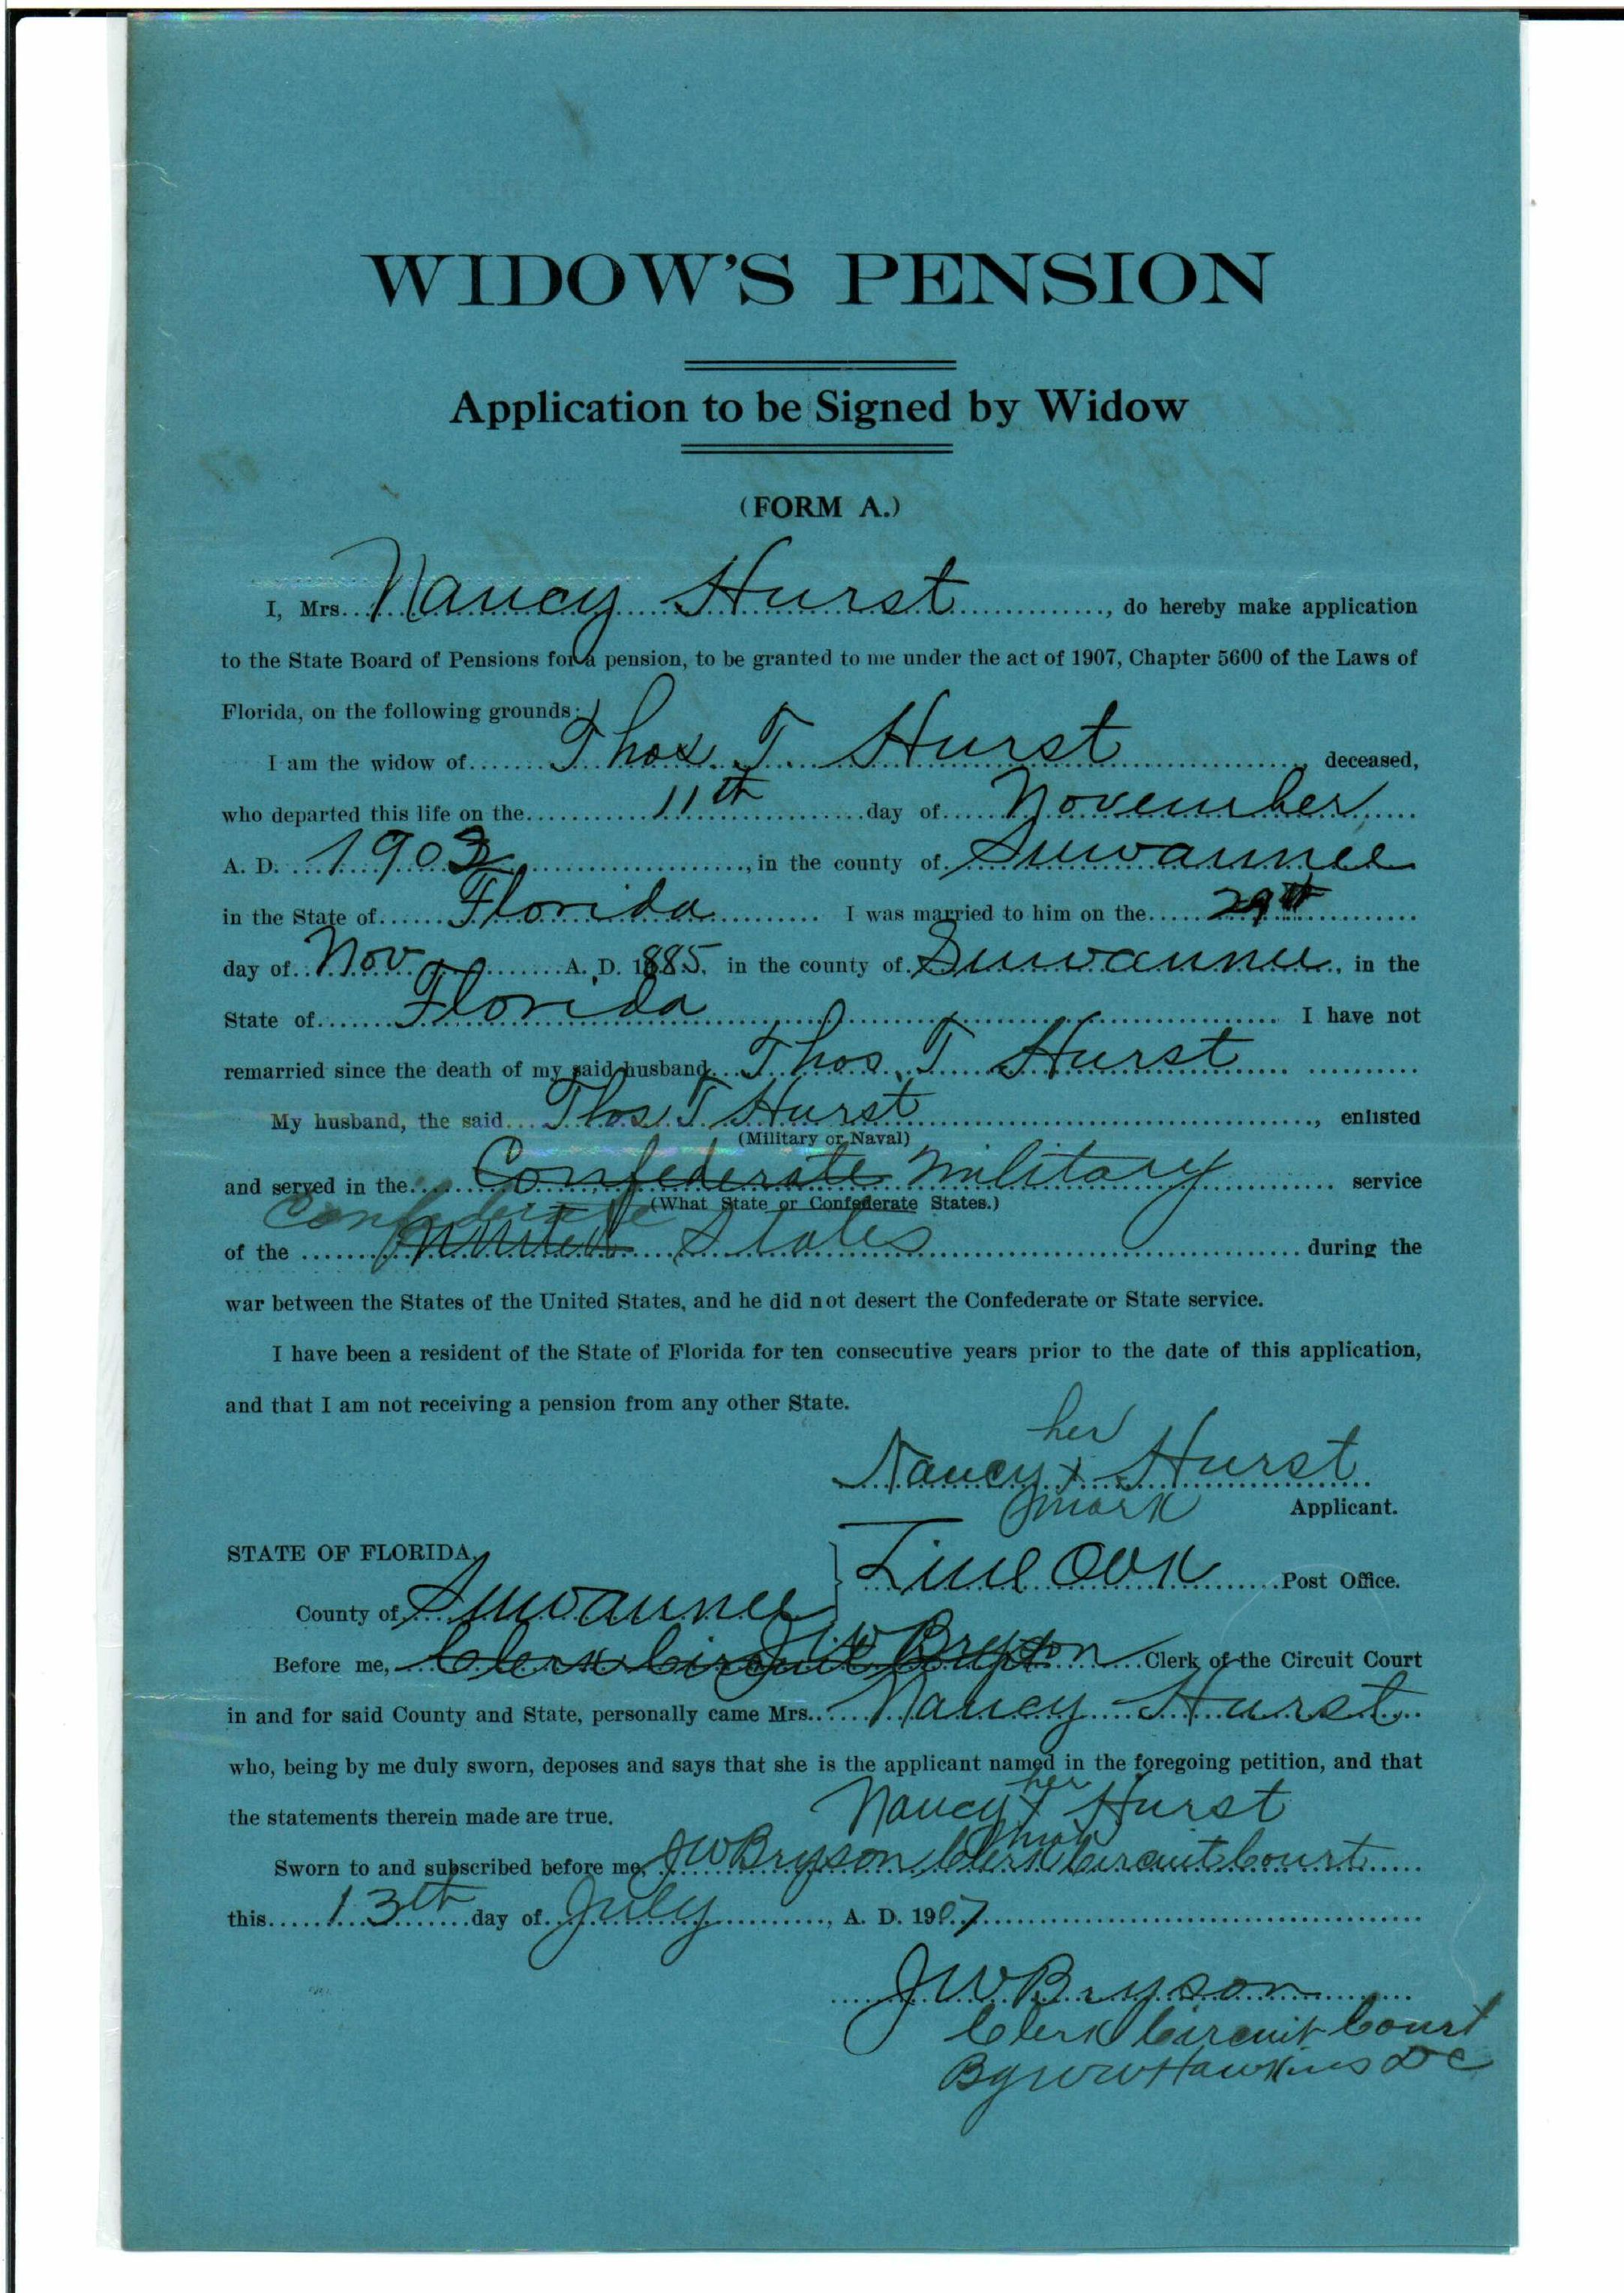 WIDOW'S PENSION
Application to be Signed by Widow
(FORM A.)
I, Mrs. Nancy Hurst, do hereby make application
to the State Board of Pensions for a pension, to be granted to me under the act of 1907, Chapter 5600 of the Laws of
Florida, on the following grounds:
I am the widow of Thos. T. Hurst, deceased,
who departed this life on the 11th day of November
A. D. 1903, in the county of Suwannee
in the State of Florida I was married to him on the 29th
day of Nov A. D. 1885, in the county of Suwannee, in the
State of Florida I have not
remarried since the death of my said husband Thos. T Hurst
My husband, the said Thos T Hurst, enlisted
(Military or Naval)
and served in the Confederate military service
(What State or Confederate States.)
Confederate
of the United States during the
war between the States of the United States, and he did not desert the Confederate or State service.
I have been a resident of the State of Florida for ten consecutive years prior to the date of this application,
and that I am not receiving a pension from any other State.
her
Nancy x Hurst
mark Applicant.
STATE OF FLORIDA,
Live Oak Post Office.
County of Suwannee
Before me, Clerk Circuit Court JW Bryson Clerk of the Circuit Court
in and for said County and State, personally came Mrs. Nancy Hurst
who, being by me duly sworn, deposes and says that she is the applicant named in the foregoing petition, and that
her
the statements therein made are true. Nancy x Hurst
mark
Sworn to and subscribed before me, JW Bryson Clerk Circuit Court
this 13th day of July, A. D. 1907
JW Bryson
Clerk Circuit Court
By WW Hawkins DC